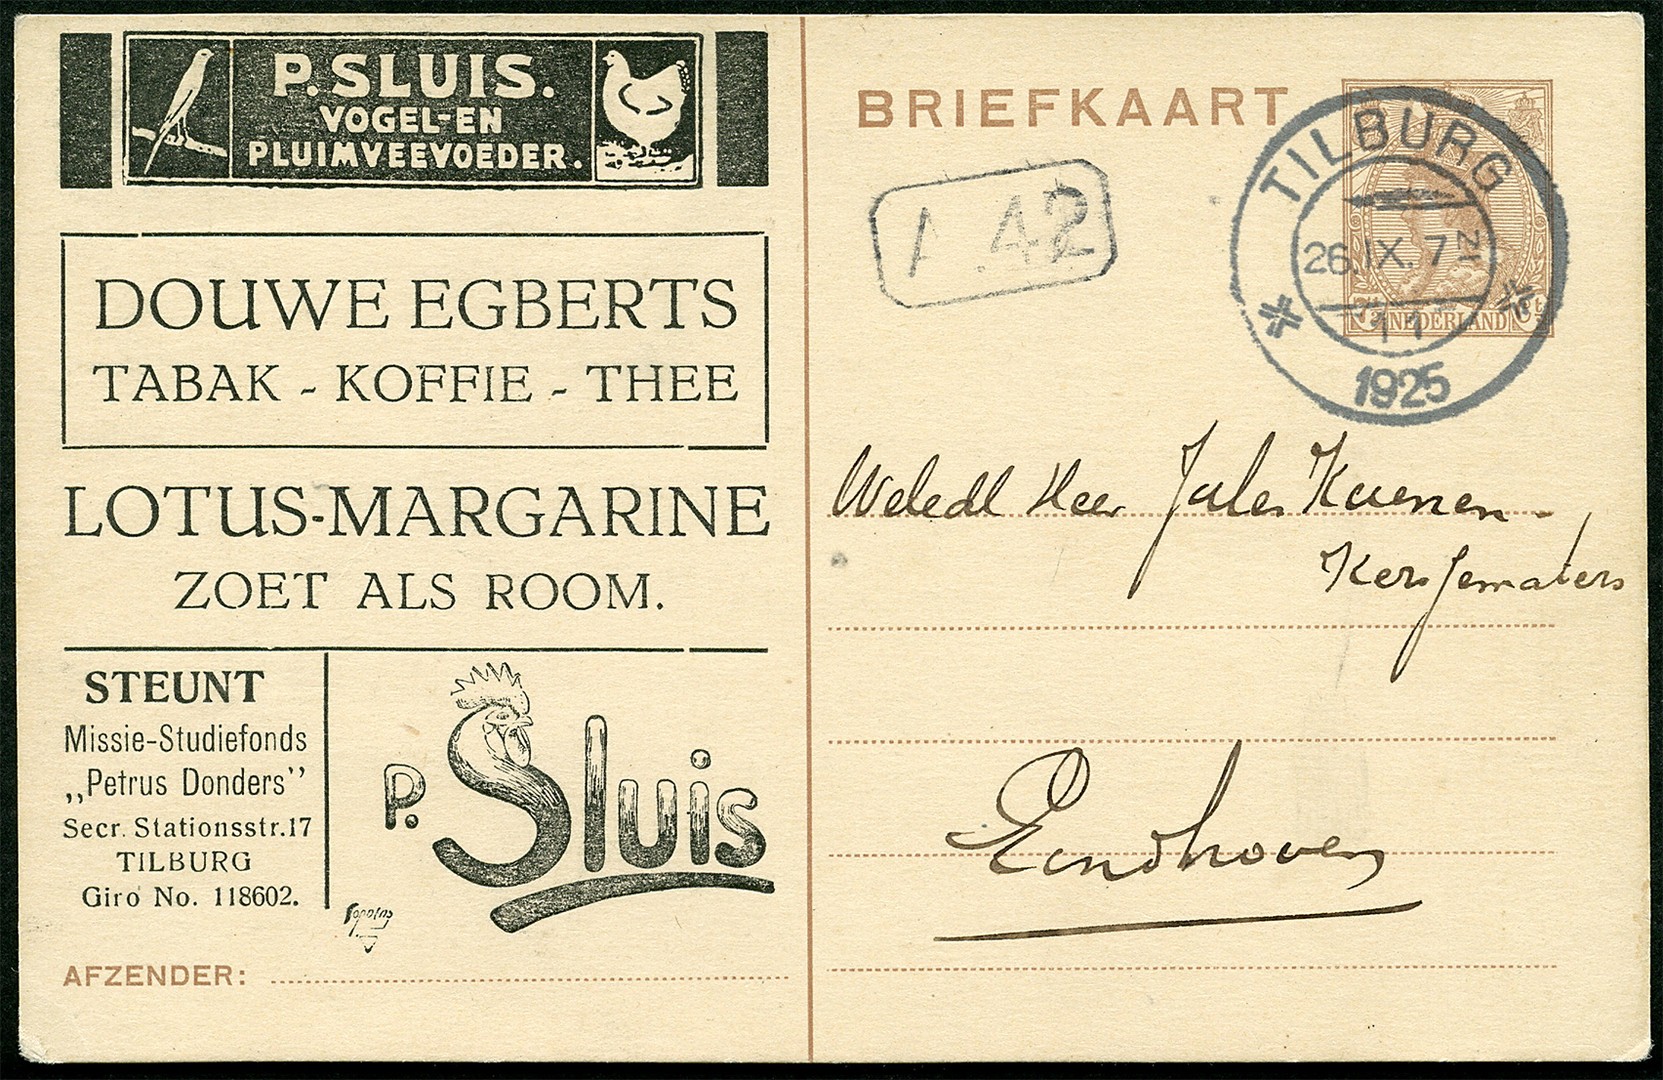 P. SLUIS.
VOGEL-EN
PLUIMVEEVOEDER.
DOUWE EGBERTS
TABAK - KOFFIE - THEE
LOTUS-MARGARINE
ZOET ALS ROOM.
STEUNT
Missie-Studiefonds
„Petrus Donders”
Secr. Stationsstr.17
TILBURG
Giro No. 118602.
P. Sluis
AFZENDER:
BRIEFKAART
A.42
TILBURG
26.IX. 7 N
11
1925
NEDERLAND
Weledl Heer Jules Kuenen
Eindhoven